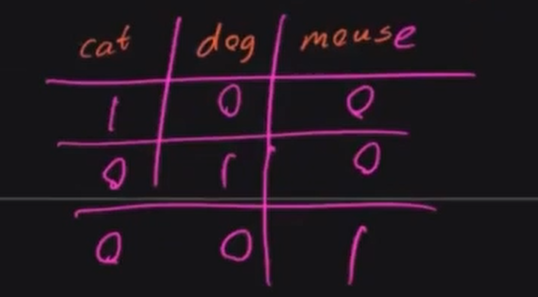 cat dog mouse
1 0 0
0 1 0
0 0 1